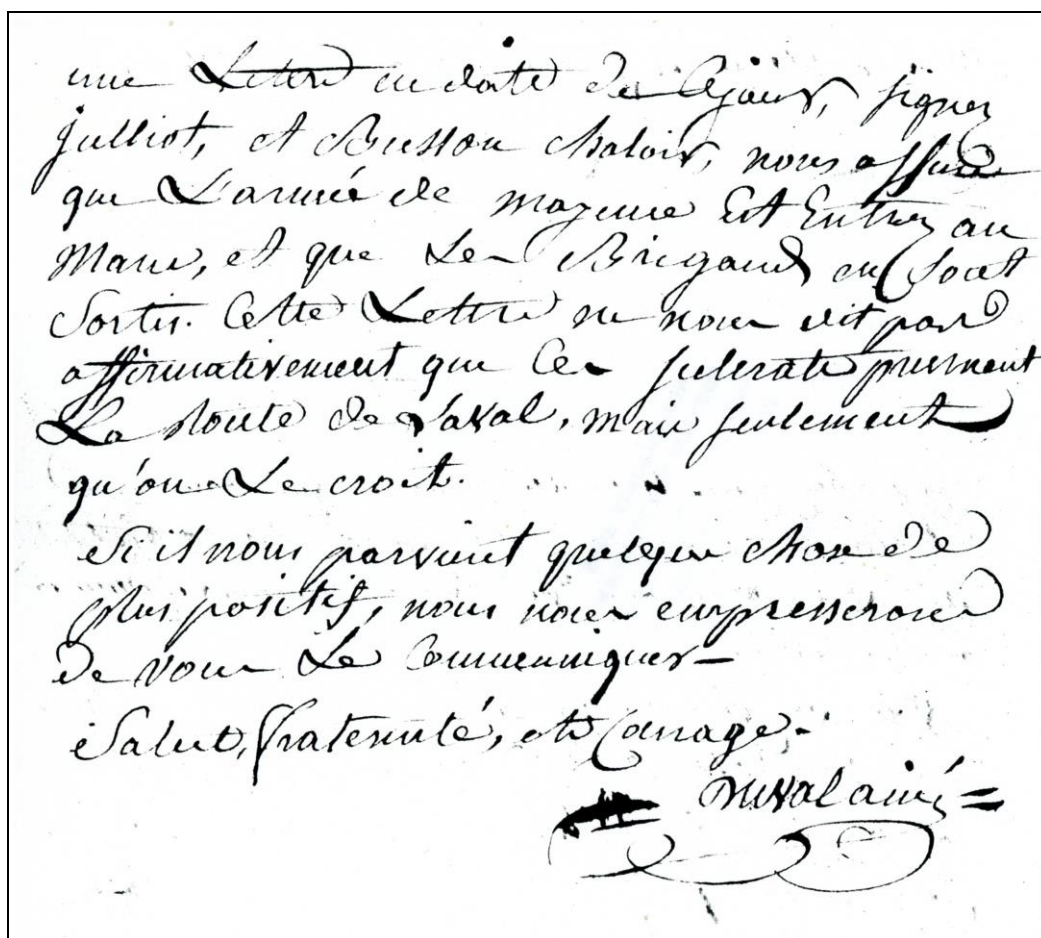 une Lettre en date de ce jour, signez
Julliot, et Busson chaloir, nous assure
que L'armée de mayenne Est Entrez au
Mans, et que Les Brigands en sont
Sortis. Cette Lettre ne nous dit pas
affirmativement que Ces scelerats prennent
La Route de Laval, mais seulement
qu'on Le croit.
Si il nous parvient quelque chose de
plus positif, nous nous empresserons
de vous Le Communiquer
Salut, fraternité, et Courage.